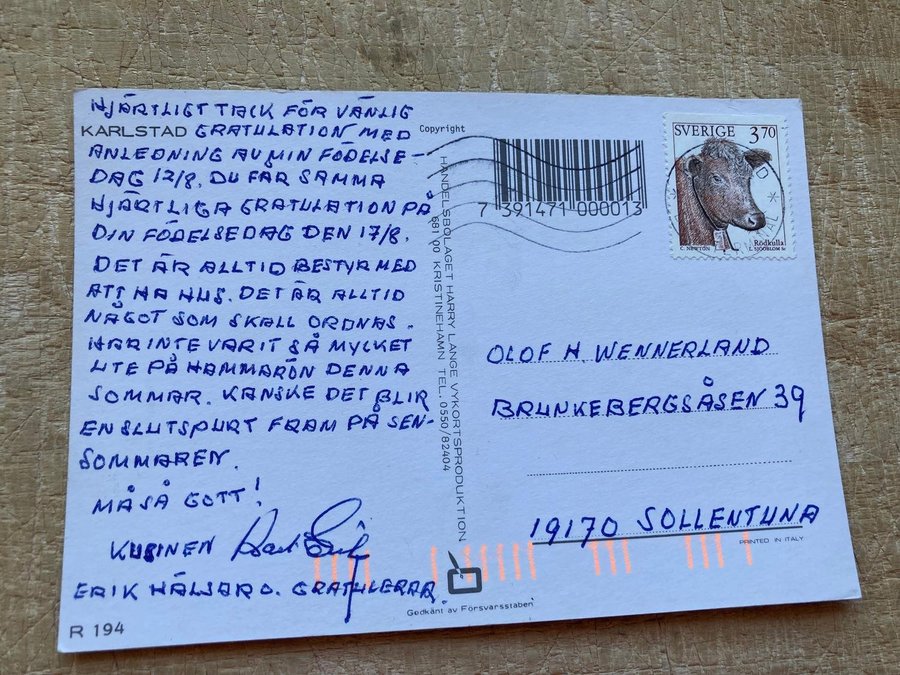 HJÄRTLIGT TACK FÖR VÄNLIG
KARLSTAD GRATULATION MED
ANLEDNING AV MIN FÖDELSE-
DAG 12/8. DU FÅR SAMMA
HJÄRTLIGA GRATULATION PÅ
DIN FÖDELSEDAG DEN 17/8.
DET ÄR ALLTID BESTYR MED
ATT HA HUS. DET ÄR ALLTID
NÅGOT SOM SKALL ORDNAS.
HAR INTE VARIT SÅ MYCKET
UTE PÅ HAMMARÖN DENNA
SOMMAR. KANSKE DET BLIR
EN SLUTSPURT FRAM PÅ SEN-
SOMMAREN.
MÅ SÅ GOTT!
KUSINEN
ERIK GRATULERAR.
R 194
Copyright
HANDELSBOLAGET HARRY LANGE VYKORTSPRODUKTION
681 00 KRISTINEHAMN TEL. 0550/82404
7 391471 000013
SVERIGE 3.70
Rödkulla
C. NEWTON L. SJÖÖBLOM SC
OLOF H. WENNERLAND
BRUNKEBERGSÅSEN 39
19170 SOLLENTUNA
PRINTED IN ITALY
Gedkänt av Försvarsstaben